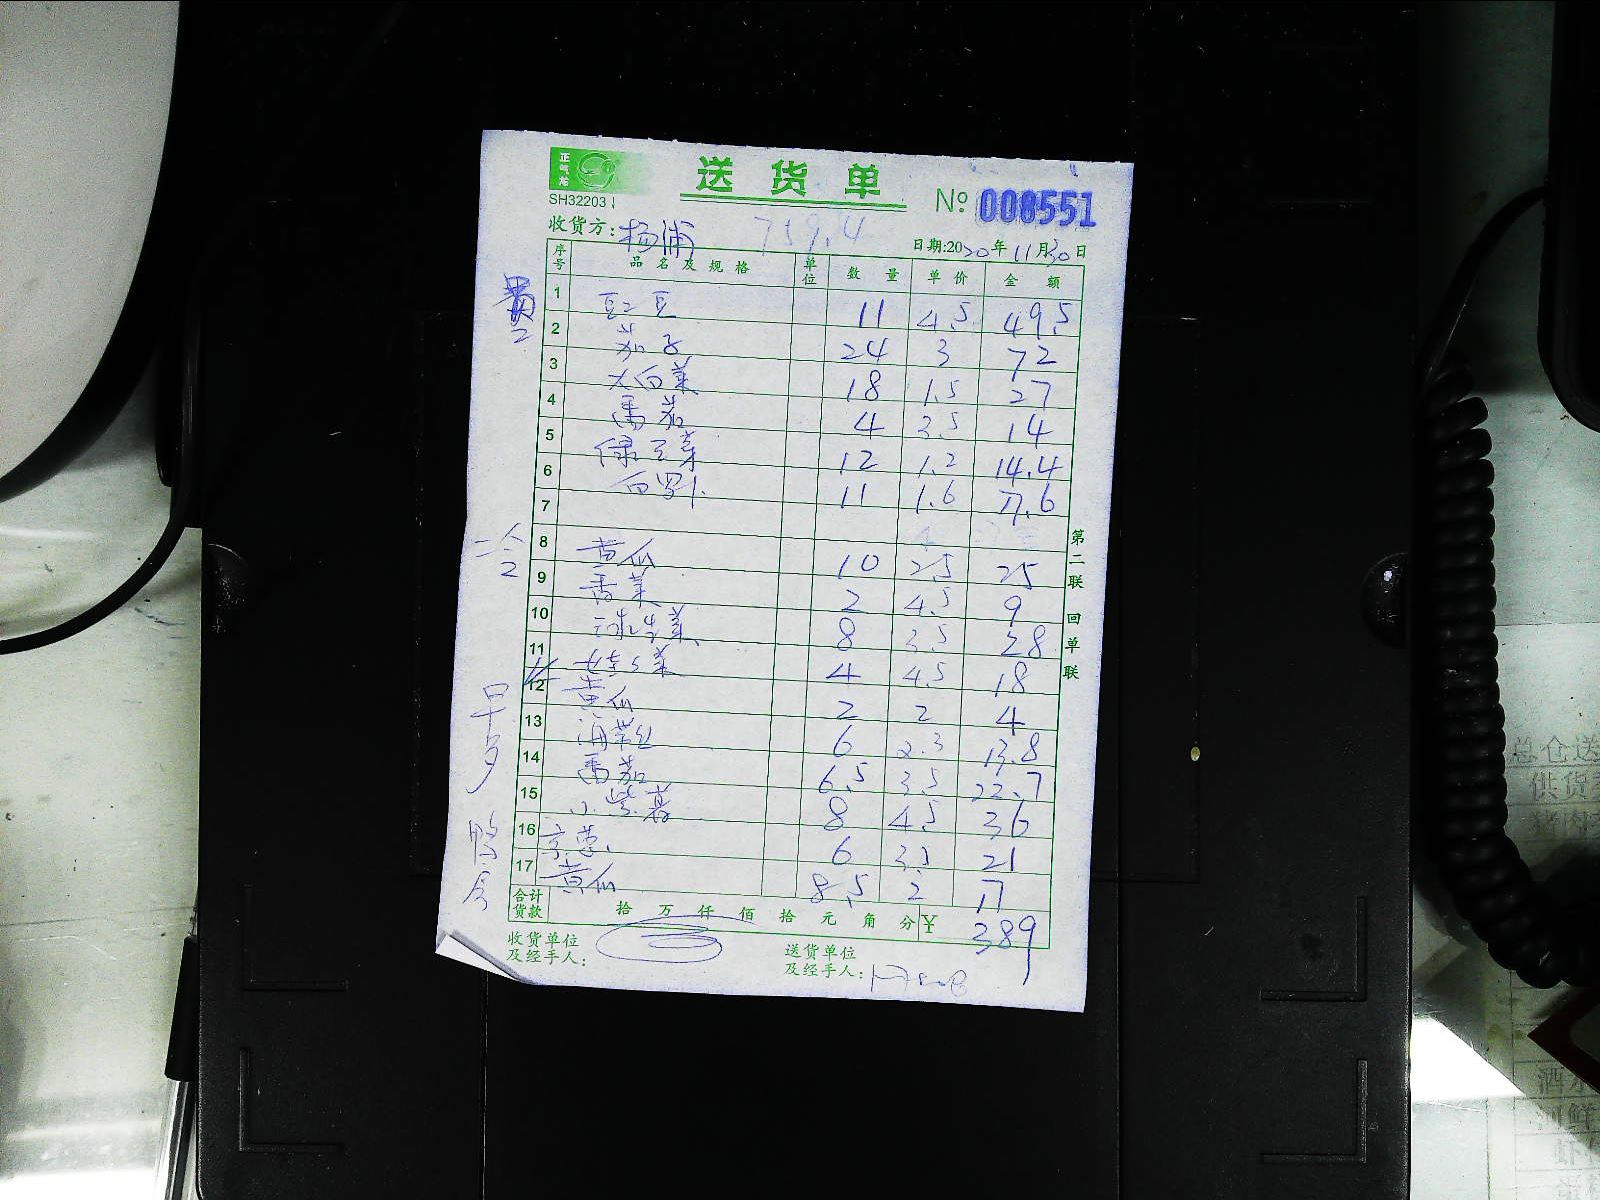 正气龙
送货单
SH32203
№ 008551
收货方: 杨浦 759.4
日期:2020年11月30日
序号 品名及规格 单位 数量 单价 金额
1 豇豆 11 4.5 49.5
2 茄子 24 3 72
3 大白菜 18 1.5 27
4 番茄 4 3.5 14
5 绿豆菜 12 1.2 14.4
6 白罗卜 11 1.6 17.6
7
8 黄瓜 10 2.5 25
9 香菜 2 4.5 9
10 球生菜 8 3.5 28
11 4 4.5 18
12 黄瓜 2 2 4
13 海带丝 6 2.3 13.8
14 番茄 6.5 3.5 22.7
15 小紫暮 8 4.5 36
16 京葱 6 3.5 21
17 黄瓜 8.5 2 17
合计货款 拾万仟佰拾元角分 ¥ 389
收货单位及经手人:
送货单位及经手人:
第二联 回单联
早
鸭
总仓送
供货
猪肉